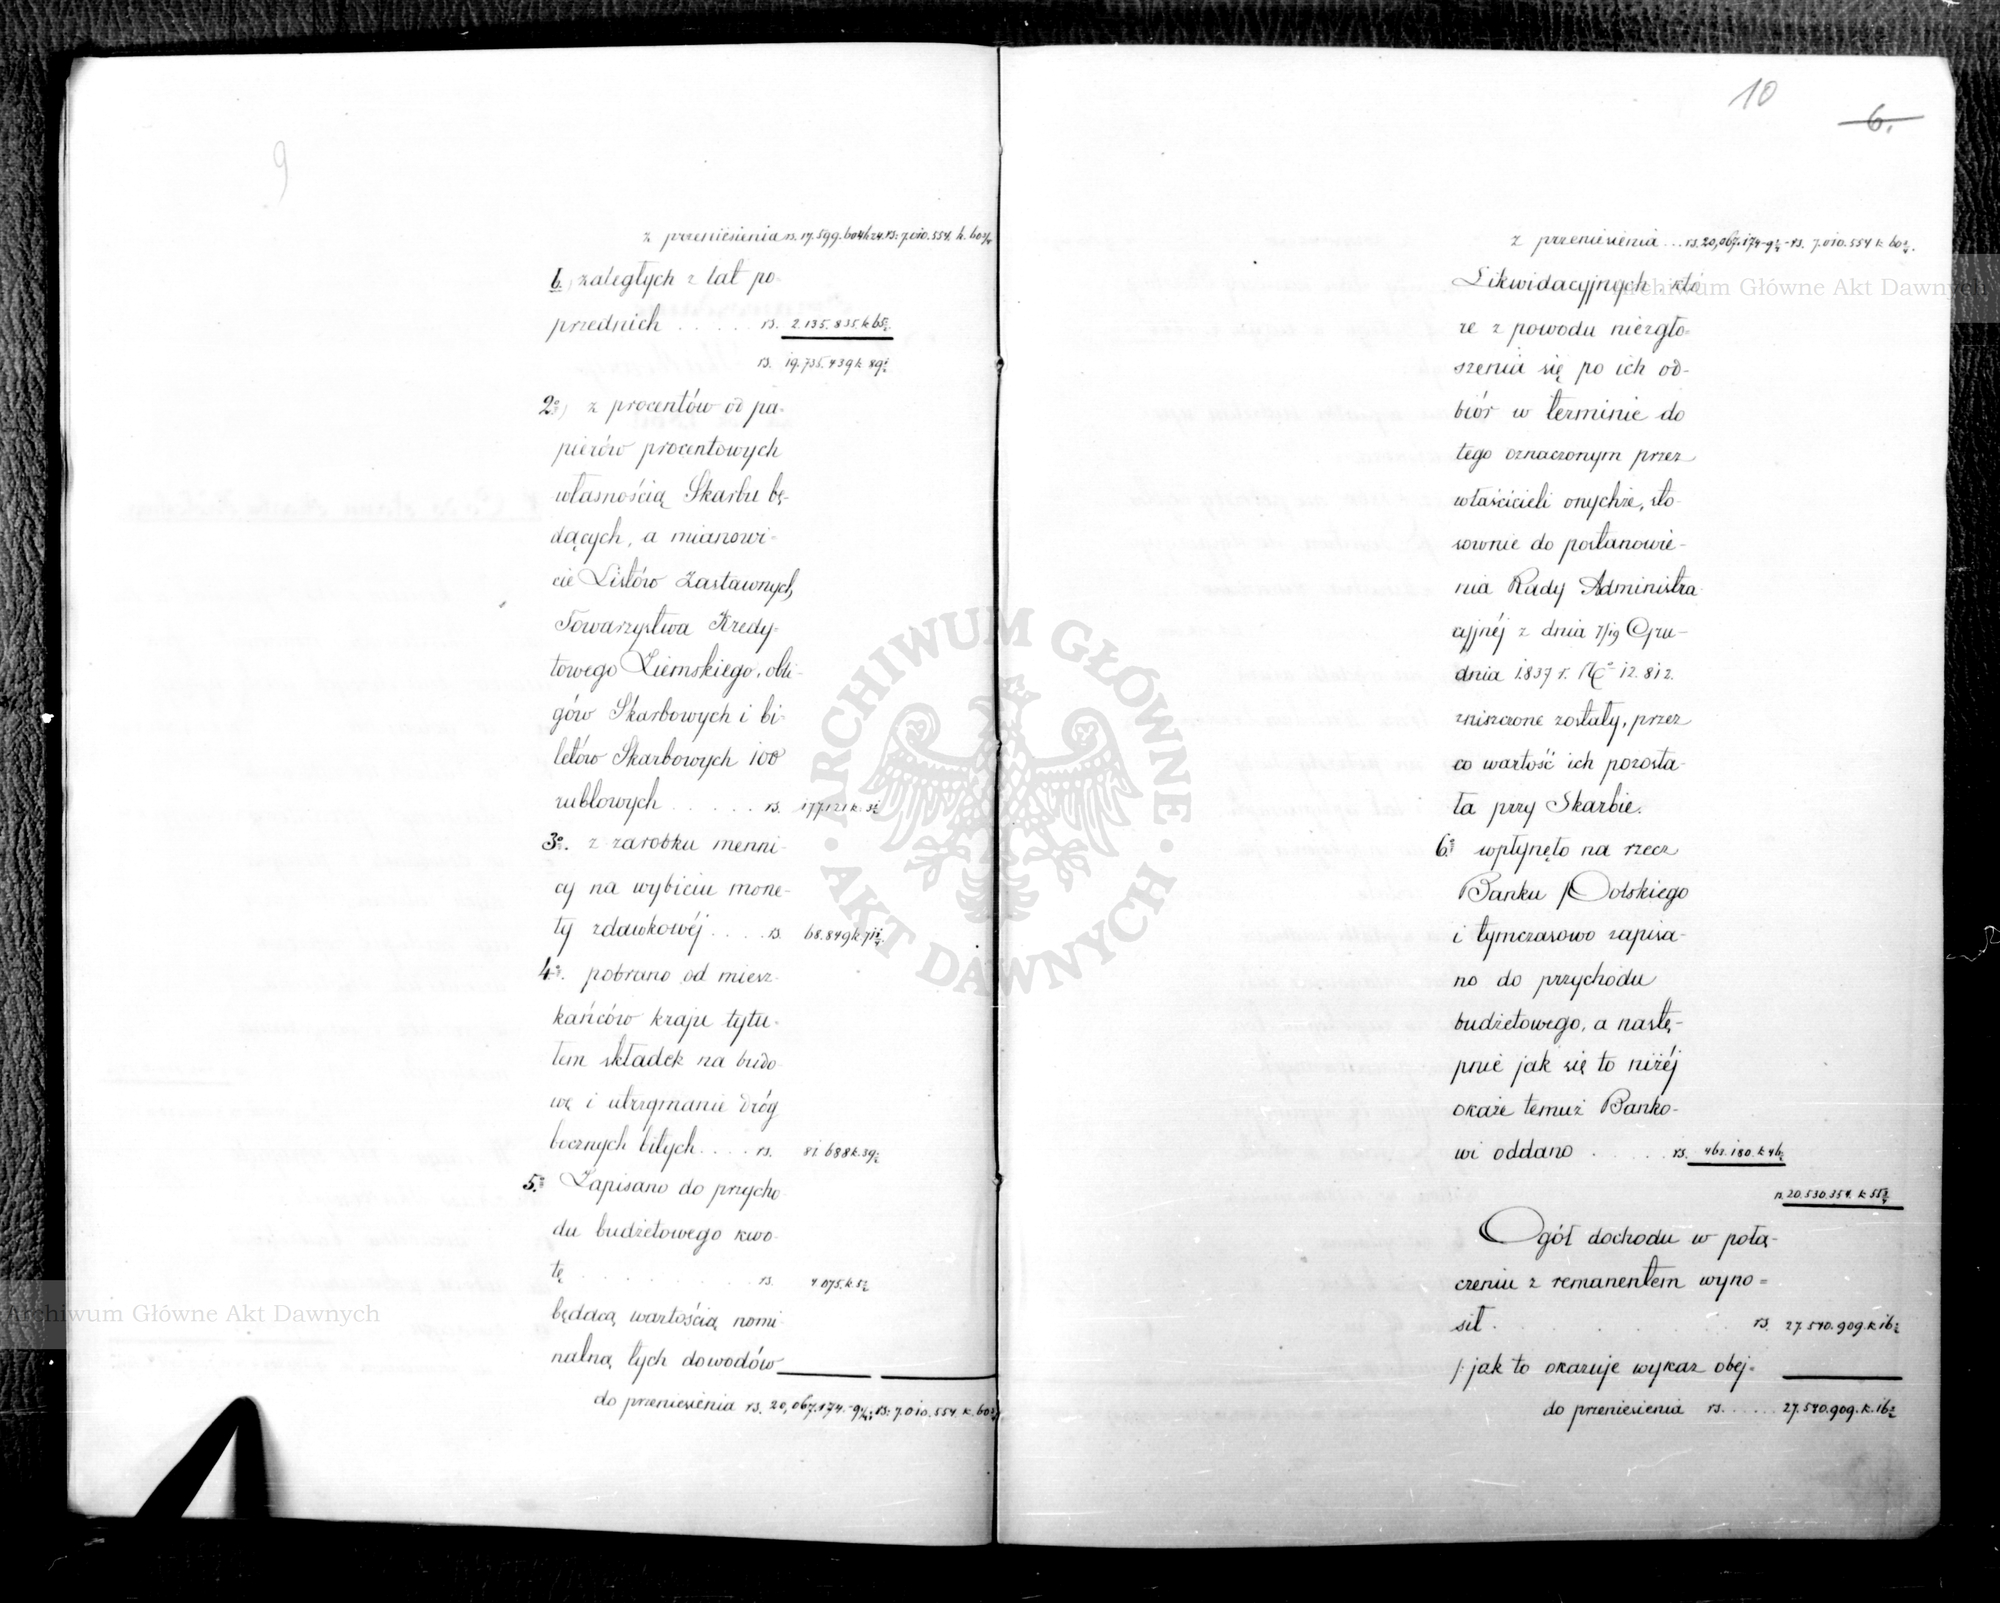 9
z przeniesienia rs. 17.599.604 k 24. rs: 7.010.554. k. 60 3/4
b.) zaległych z lat po-
przednich ..... rs. 2.135.835. k 65 1/2
rs. 19.735.439 k 89 1/2
2o) z procentów od pa-
pierów procentowych
własnością Skarbu bę-
dących, a mianowi-
cie Listów Zastawnych
Towarzystwa Kredy-
towego Ziemskiego, obli-
gów Skarbowych i bi-
letów Skarbowych 100
rublowych ...... rs. 177.121 k. 3 1/2
3o. z zarobku menni-
cy na wybiciu mone-
ty zdawkowéj .... rs. 68.849 k.
4o. pobrano od miesz-
kańców kraju tytu-
łem składek na budo-
wę i utrzymanie dróg
bocznych bitych .... rs. 81.688 k. 39 1/2
5o. Zapisano do przycho-
du budżetowego kwo-
tę .......... rs. 4.075. k. 5 1/2
będącą wartością nomi-
nalną tych dowodów
do przeniesienia rs. 20,067.174.-9 1/4; rs: 7.010.554. k. 60 3/4
10
6.
z przeniesienia ... rs. 20,067.174-9 1/4 - rs. 7.010.554 k 60 3/4.
Likwidacyjnych, któ
re z powodu niezgło-
szenia się po ich od-
biór w terminie do
tego oznaczonym przez
właścicieli onychże, sto-
sownie do postanowie-
nia Rady Administra
cyjnéj z dnia 7/19 Gru-
dnia 1837 r. No 12.812.
zniszczone zostały, przez
co wartość ich pozosta-
ła przy Skarbie.
6o wpłynęło na rzecz
Banku Polskiego
i tymczasowo zapisa-
no do przychodu
budżetowego, a nastę-
pnie jak się to niżéj
okaże temuż Banko-
wi oddano ...... rs. 463.180. k 46 1/2
rs. 20.530.354. k 55 3/4
Ogół dochodu w połą-
czeniu z remanentem wyno=
sił .......... rs. 27.540.909. k. 16 1/2
/: jak to okazuje wykaz obej=
do przeniesienia rs. .... 27.540.909. k. 16 1/2
Archiwum Główne Akt Dawnych
Archiwum Główne Akt Dawnych
ARCHIWUM GŁÓWNE
AKT DAWNYCH